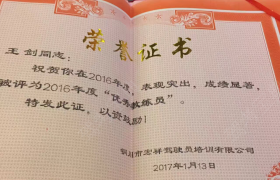 荣誉证书
王剑同志：
祝贺你在2016年度，表现突出，成绩显著，
被评为2016年度“优秀教练员”。
特发此证，以资鼓励！
银川市宏祥驾驶员培训有限公司
2017年1月13日